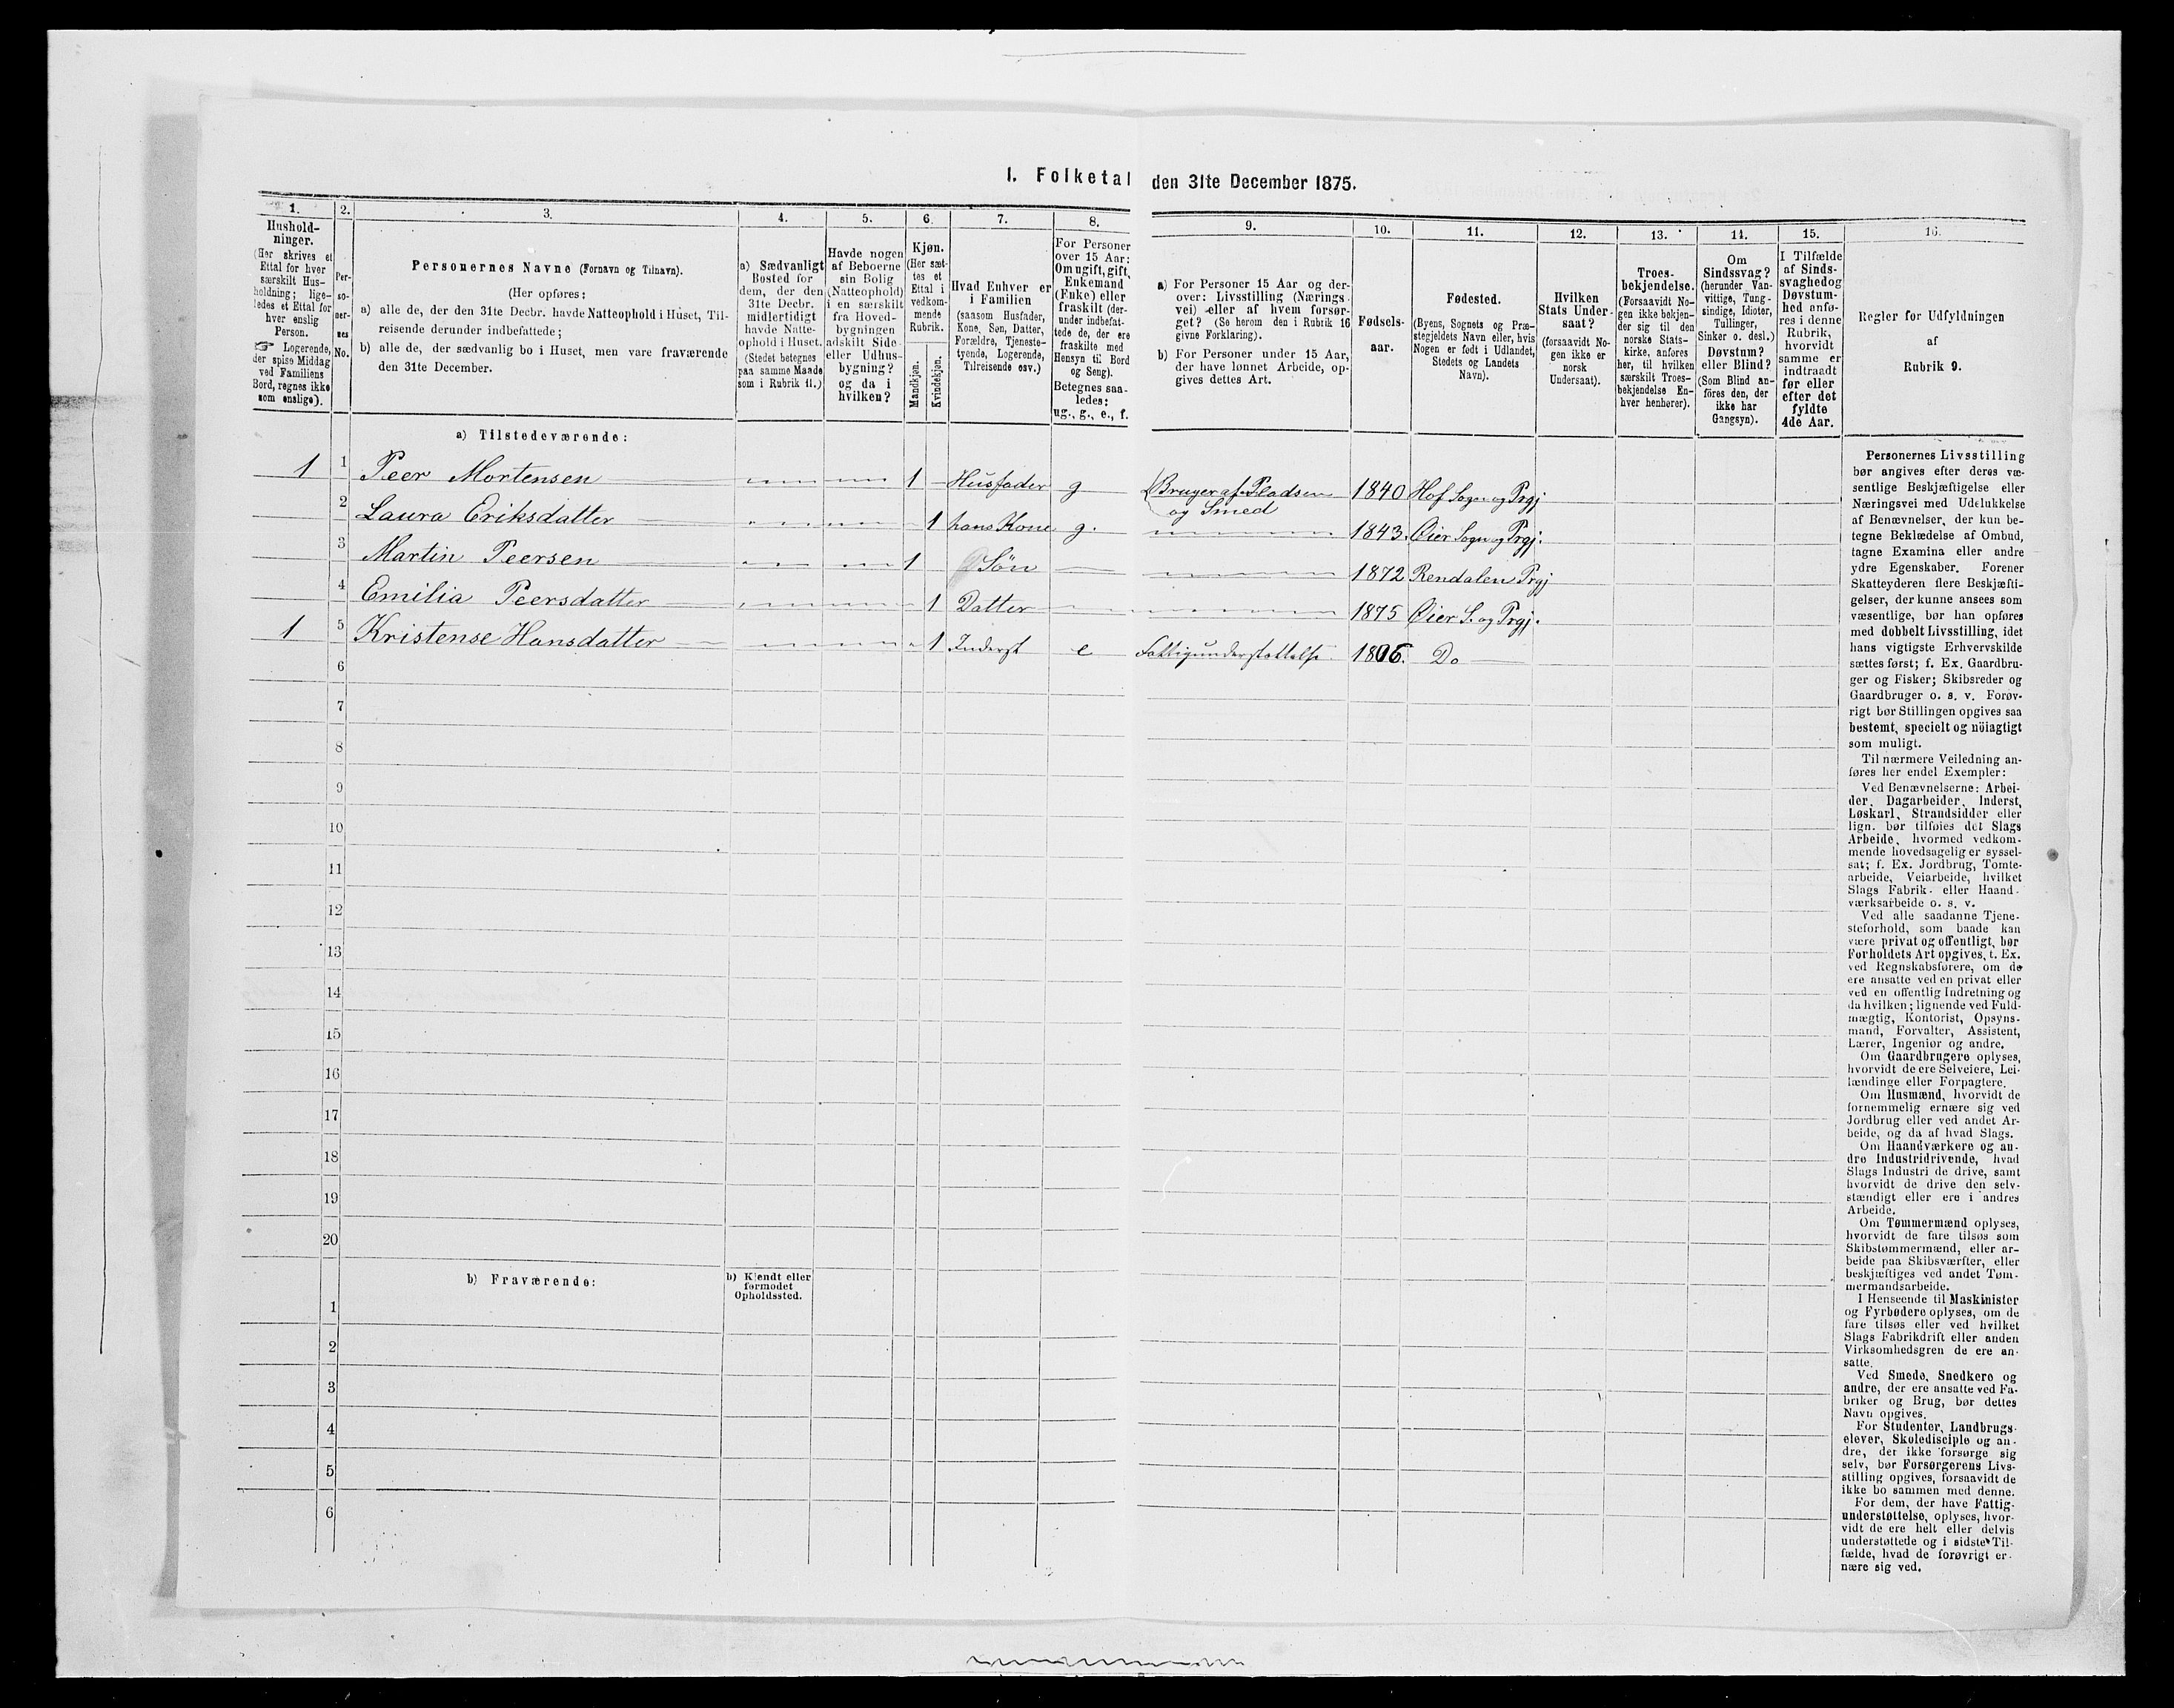 I. Folketal den 31te December 1875.
1. 2. 3. 4. 5. 6. 7. 8. 9. 10. 11. 12. 13. 14. 15. 16.
Hushold-
ninger.
(Her skrives et
Ettal for hver
særskilt Hus-
holdning; lige-
ledes et Ettal for
hver enslig
Person.
☞ Logerende,
der spise Middag
ved Familiens
Bord, regnes ikke
som enslige).
Per-
so-
ner-
nes
No.
Personernes Navne (Fornavn og Tilnavn).
(Her opføres:
a) alle de, der den 31te Decbr. havde Natteophold i Huset, Til-
reisende derunder indbefattede;
b) alle de, der sædvanlig bo i Huset, men vare fraværende
den 31te December.
a) Sædvanligt
Bosted for
dem, der den
31te Decbr.
midlertidigt
havde Natte-
ophold i Huset.
(Stedet betegnes
paa samme Maade
som i Rubrik 11.)
Havde nogen
af Beboerne
sin Bolig
(Natteophold)
i en særskilt
fra Hoved-
bygningen
adskilt Side-
eller Udhus-
bygning?
og da i
hvilken?
Kjøn.
(Her sæt-
tes et
Ettal i
vedkom-
mende
Rubrik.
Mandkjøn.
Kvindekjøn.
Hvad Enhver er
i Familien
(saasom Husfader,
Kone, Søn, Datter,
Forældre, Tjeneste-
tyende, Logerende,
Tilreisende osv.)
For Personer
over 15 Aar:
Om ugift, gift,
Enkemand
(Enke) eller
fraskilt (der-
under indbefat-
tede de, der ere
fraskilte med
Hensyn til Bord
og Seng).
Betegnes saa-
ledes:
ug., g., e., f.
a) For Personer 15 Aar og der-
over: Livsstilling (Nærings-
vei) eller af hvem forsør-
get? (Se herom den i Rubrik 16
givne Forklaring).
b) For Personer under 15 Aar,
der have lønnet Arbeide, op-
gives dettes Art.
Fødsels-
aar.
Fødested.
(Byens, Sognets og Præ-
stegjeldets Navn eller, hvis
Nogen er født i Udlandet,
Stedets og Landets
Navn).
Hvilken
Stats Under-
saat?
(forsaavidt No-
gen ikke er
norsk
Undersaat).
Troes-
bekjendelse.
(Forsaavidt No-
gen ikke bekjen-
der sig til den
norske Stats-
kirke, anføres
her, til hvilken
særskilt Troes-
bekjendelse En-
hver henhører).
Om
Sindssvag?
(herunder Van-
vittige, Tung-
sindige, Idioter,
Tullinger,
Sinker o. desl.)
Døvstum?
eller Blind?
(Som Blind an-
føres den, der
ikke har
Gangsyn).
I Tilfælde
af Sinds-
svaghed og
Døvstum-
hed anfø-
res i denne
Rubrik,
hvorvidt
samme er
indtraadt
før eller
efter det
fyldte
4de Aar.
Regler for Udfyldningen
af
Rubrik 9.
a) Tilstedeværende:
1 1 Peer Mortensen 1 Husfader g Bruger af Pladsen og Smed 1840 Hof Sogn og Prgj
2 Laura Eriksdatter 1 hans Kone g. 1843. Øier Sogn og Prgj.
3 Martin Peersen 1 Søn 1872 Rendalen Prgj
4 Emilia Peersdatter 1 Datter 1875 Øier S. og Prgj.
1 5 Kristense Hansdatter 1 Inderst e Fattigunderstøttelse 1806. Do
6
7
8
9
10
11
12
13
14
15
16
17
18
19
20
b) Fraværende:
b) Kjendt eller
formodet
Opholdssted.
1
2
3
4
5
6
Personernes Livsstilling
bør angives efter deres væ-
sentlige Beskjæftigelse eller
Næringsvei med Udelukkelse
af Benævnelser, der kun be-
tegne Beklædelse af Ombud,
tagne Examina eller andre
ydre Egenskaber. Forener
Skatteyderen flere Beskjæfti-
gelser, der kunne ansees som
væsentlige, bør han opføres
med dobbelt Livsstilling, idet
hans vigtigste Erhvervskilde
sættes først; f. Ex. Gaardbru-
ger og Fisker; Skibsreder og
Gaardbruger o. s. v. Forøv-
rigt bør Stillingen opgives saa
bestemt, specielt og nöiagtigt
som muligt.
Til nærmere Veiledning an-
føres her endel Exempler:
Ved Benævnelserne: Arbei-
der, Dagarbeider, Inderst,
Løskarl, Strandsidder eller
lign. bør tilføies det Slags
Arbeide, hvormed vedkom-
mende hovedsagelig er syssel-
sat; f. Ex. Jordbrug, Tomte-
arbeide, Veiarbeide, hvilket
Slags Fabrik- eller Haand-
værksarbeide o. s. v.
Ved alle saadanne Tjene-
steforhold, som baade kan
være privat og offentligt, bør
Forholdets Art opgives, t. Ex.
ved Regnskabsførere, om de
ere ansatte ved en privat eller
ved en offentlig Indretning og
da hvilken; lignende ved Fuld-
mægtig, Kontorist, Opsyns-
mand, Forvalter, Assistent,
Lærer, Ingeniør og andre.
Om Gaardbrugere oplyses,
hvorvidt de ere Selveiere, Lei-
lændinge eller Forpagtere.
Om Husmænd, hvorvidt de
fornemmelig ernære sig ved
Jordbrug eller ved andet Ar-
beide, og da af hvad Slags.
Om Haandværkere og an-
dre Industridrivende, hvad
Slags Industri de drive, samt
hvorvidt de drive den selv-
stændigt eller ere i andres
Arbeide.
Om Tømmermænd oplyses,
hvorvidt de fare tilsøs som
Skibstømmermænd, eller ar-
beide paa Skibsværfter, eller
beskjæftiges ved andet Tøm-
mermandsarbeide.
I Henseende til Maskinister
og Fyrbødere oplyses, om de
fare tilsøs eller ved hvilket
Slags Fabrikdrift eller anden
Virksomhedsgren de ere an-
satte.
Ved Smede, Snedkere og
andre, der ere ansatte ved Fa-
briker og Brug, bør dettes
Navn opgives.
For Studenter, Landbrugs-
elever, Skoledisciple og an-
dre, der ikke forsørge sig
selv, bør Forsørgerens Livs-
stilling opgives, forsaavidt de
ikke bo sammen med denne.
For dem, der have Fattig-
understøttelse, oplyses, hvor-
vidt de ere helt eller delvis
understøttede og i sidste Til-
fælde, hvad de forøvrigt er-
nære sig ved.